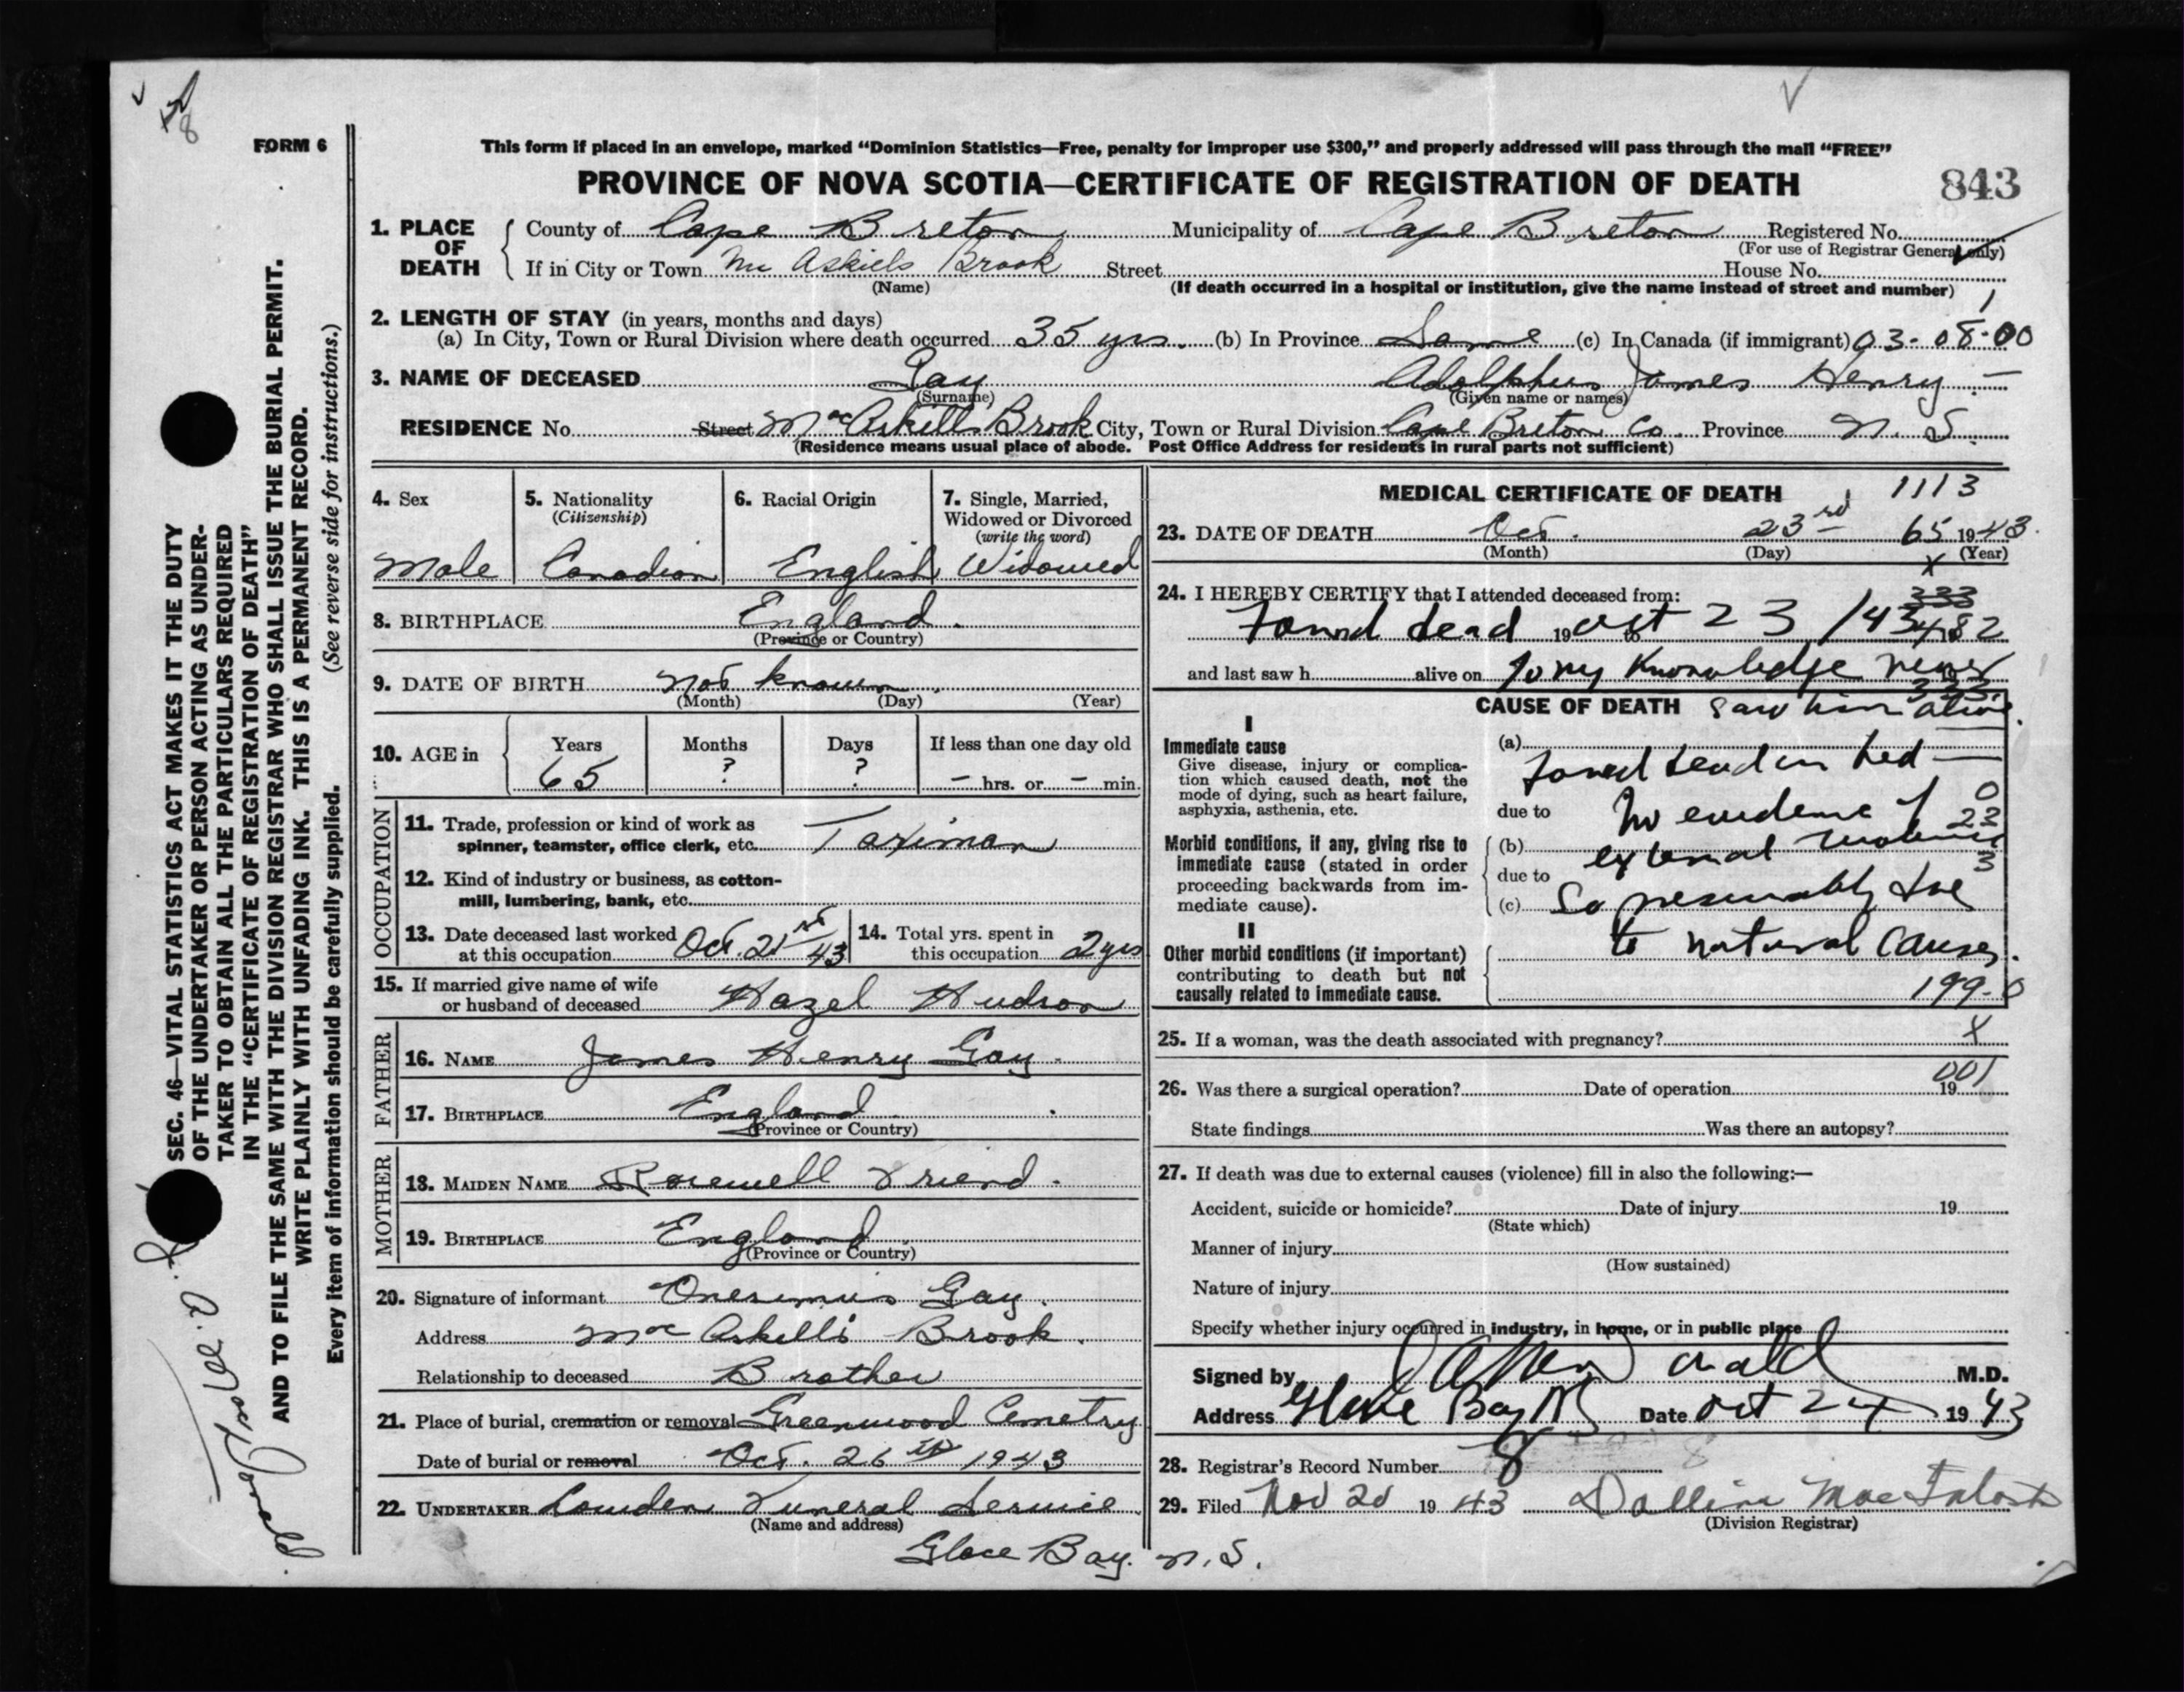 FORM 6
This form if placed in an envelope, marked “Dominion Statistics—Free, penalty for improper use $300,” and properly addressed will pass through the mail “FREE”
PROVINCE OF NOVA SCOTIA—CERTIFICATE OF REGISTRATION OF DEATH 843
1. PLACE OF DEATH
County of Cape Breton Municipality of Cape Breton Registered No.
(For use of Registrar General only)
If in City or Town Mc Askiels Brook Street House No.
(Name) (If death occurred in a hospital or institution, give the name instead of street and number)
2. LENGTH OF STAY (in years, months and days)
(a) In City, Town or Rural Division where death occurred 35 yrs. (b) In Province Same (c) In Canada (if immigrant) 03-08-00
3. NAME OF DECEASED Gay Adolphus James Henry –
(Surname) (Given name or names)
RESIDENCE No. Street MacAskill's Brook City, Town or Rural Division Cape Breton Co. Province N. S.
(Residence means usual place of abode. Post Office Address for residents in rural parts not sufficient)
4. Sex
Male
5. Nationality
(Citizenship)
Canadian
6. Racial Origin
English
7. Single, Married,
Widowed or Divorced
(write the word)
Widowed
8. BIRTHPLACE England.
(Province or Country)
9. DATE OF BIRTH Not known
(Month) (Day) (Year)
10. AGE in
Years Months Days If less than one day old
65 ? ? – hrs. or – min.
OCCUPATION
11. Trade, profession or kind of work as
spinner, teamster, office clerk, etc. Taximan
12. Kind of industry or business, as cotton-
mill, lumbering, bank, etc.
13. Date deceased last worked
at this occupation Oct. 21st 43
14. Total yrs. spent in
this occupation 2 yrs
15. If married give name of wife
or husband of deceased Hazel Hudson
FATHER
16. NAME James Henry Gay.
17. BIRTHPLACE England.
(Province or Country)
MOTHER
18. MAIDEN NAME Friend.
19. BIRTHPLACE England.
(Province or Country)
20. Signature of informant Onesimus Gay.
Address Mac Askell's Brook.
Relationship to deceased Brother
21. Place of burial, cremation or removal Greenwood Cemetry
Date of burial or removal Oct. 26th 1943
22. UNDERTAKER Funeral Service
(Name and address)
Glace Bay. N. S.
MEDICAL CERTIFICATE OF DEATH 1113
23. DATE OF DEATH Oct. 23rd 65 1943.
(Month) (Day) (Year)
24. I HEREBY CERTIFY that I attended deceased from:
Found dead 19 Oct to 23 /43
and last saw h alive on to my Knowledge never
CAUSE OF DEATH saw him alive.
I
Immediate cause
Give disease, injury or complica-
tion which caused death, not the
mode of dying, such as heart failure,
asphyxia, asthenia, etc.
Morbid conditions, if any, giving rise to
immediate cause (stated in order
proceeding backwards from im-
mediate cause).
II
Other morbid conditions (if important)
contributing to death but not
causally related to immediate cause.
(a) found dead in bed —
due to No evidence of
(b) external violence
due to
(c) So presumably due
to natural causes.
199-0
25. If a woman, was the death associated with pregnancy? X
26. Was there a surgical operation? Date of operation 19 001
State findings Was there an autopsy?
27. If death was due to external causes (violence) fill in also the following:—
Accident, suicide or homicide? Date of injury 19
(State which)
Manner of injury
(How sustained)
Nature of injury
Specify whether injury occurred in industry, in home, or in public place
Signed by M.D.
Address Glace Bay NS Date Oct 24 1943
28. Registrar's Record Number 8
29. Filed Nov 20 1943 MacIntosh
(Division Registrar)
SEC. 46—VITAL STATISTICS ACT MAKES IT THE DUTY
OF THE UNDERTAKER OR PERSON ACTING AS UNDER-
TAKER TO OBTAIN ALL THE PARTICULARS REQUIRED
IN THE “CERTIFICATE OF REGISTRATION OF DEATH”
AND TO FILE THE SAME WITH THE DIVISION REGISTRAR WHO SHALL ISSUE THE BURIAL PERMIT.
WRITE PLAINLY WITH UNFADING INK. THIS IS A PERMANENT RECORD.
Every item of information should be carefully supplied. (See reverse side for instructions.)